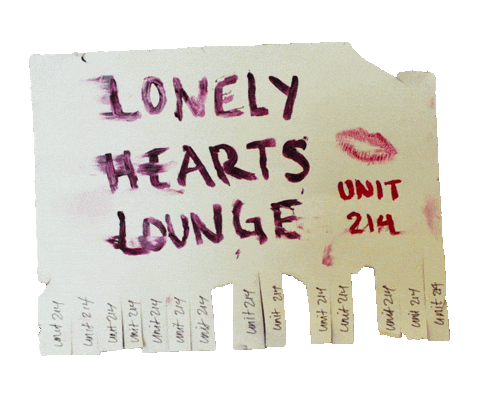 LONELY
HEARTS
LOUNGE
UNIT
214
unit 214
unit 214
unit 214
unit 214
unit 214
unit 214
unit 214
unit 214
unit 214
unit 214
unit 214
unit 214
unit 214
unit 214